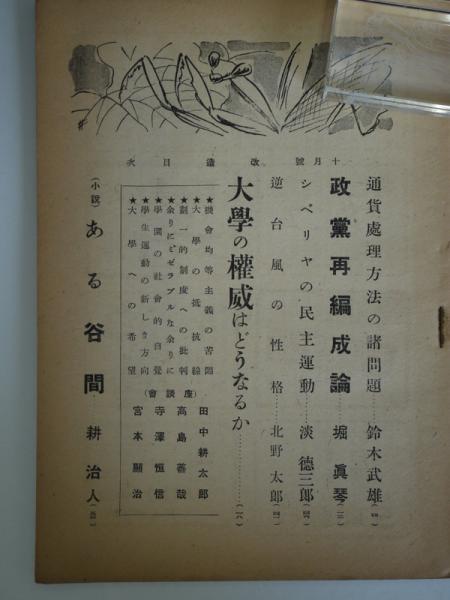 十月號 改造 目次
通貨處理方法の諸問題……鈴木武雄(四)
政黨再編成論……堀眞琴(三)
シベリヤの民主運動……淡徳三郎(四六)
逆台風の性格……北野太郎(四一)
大學の權威はどうなるか……(一八)
★機會均等主義の苦悶
★大學の抵抗線
★劃一的制度への批判
★余りにミゼラブルな余りに
★學園の社會的自覺
★學生運動の新しき方向
★大學への希望
(座談會)
田中耕太郎
高島善哉
寺澤恒信
宮本顯治
(小說)ある谷間……耕治人